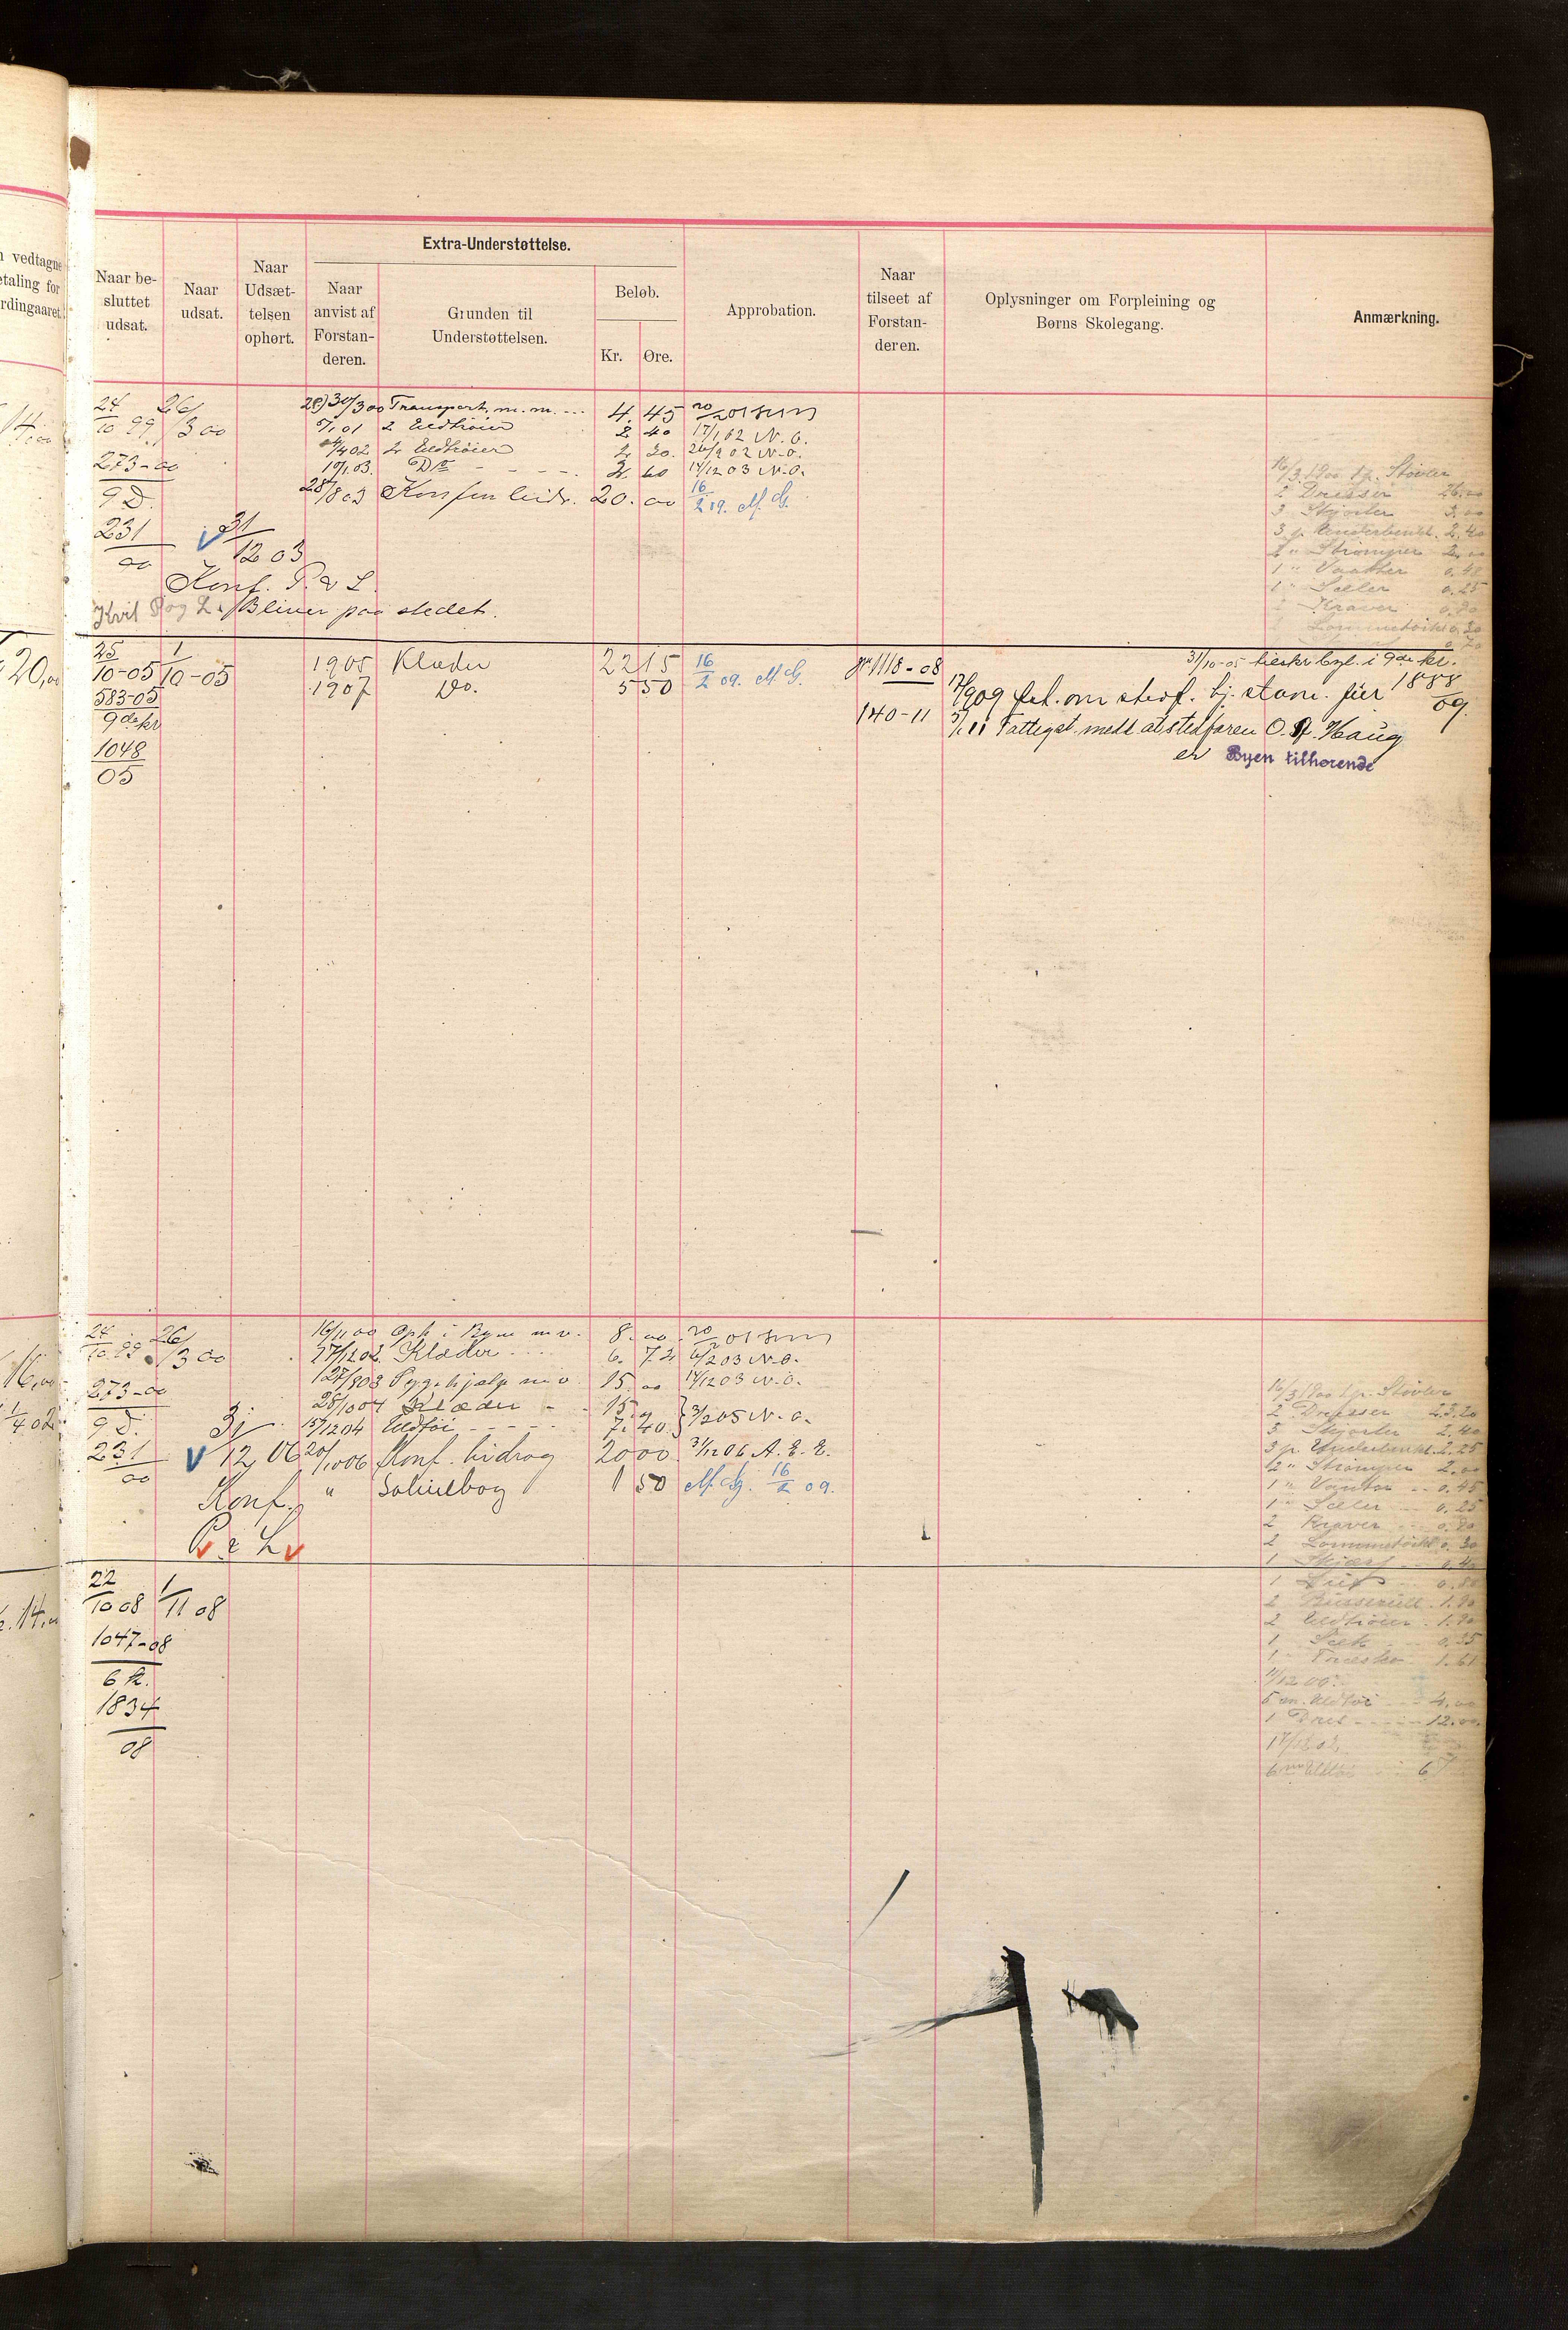 n vedtagne
etaling for
rdingaaret.
Naar be-
sluttet
udsat.
Naar
udsat.
Naar
Udsæt-
telsen
ophørt.
Extra-Understøttelse.
Naar
anvist af
Forstan-
deren.
Grunden til
Understøttelsen.
Beløb.
Kr. Øre.
Approbation.
Naar
tilseet af
Forstan-
deren.
Oplysninger om Forpleining og
Børns Skolegang.
Anmærkning.
24/10 99. 26/3 00
30/3 00 Transport m. m. 4. 45 20/2 01
5/1 01 2 Uldtrøier 2 40 17/1 02 N. O.
4/4 02 2 Uldtrøier 2. 20. 26/2 02 N. O.
19/1 03. Do - - - - 2. 60 14/12 03 N. O.
28/8 03 Konf. 20. 00 16/2 09. M. G.
273-00
9 D.
231
00
31/12 03
Konf. P. & L.
Bliver paa stedet.
16/3 1900 1 p. Støvler
2 Dresser 26.00
3 Skjorter 3.00
3 p. Underbenkl. 2.40
2 " Strømper 2.00
1 " Vanter 0.48
1 " Seler 0.25
2 Kraver 0.80
Lommetørkl 0.30
14,00
20,00
25/10-05 1/10-05
583-05
9de kr
1048
05
1905 Klæder 22 15 16/2 09. M. G.
1907 Do. 5 50
1118-08
140-11
31/10-05 i 9de kr.
17/9 09 om 1888/09.
5/1 11 Fattigst. medd. at stedfaren O. A. Haug
er Byen tilhørende
24/10 99. 26/3 00
273-00
9 D.
231
00
31/12 06
Konf.
P. & L.
16/11 00 Oph i Byen m v. 8. 00. 20/2 01
27/12 02. Klæder 6. 72 6/2 03 N. O.
27/8 03 Sygehjælp m v. 15. 00 14/12 03 N. O.
28/10 04 Klæder - - 15.
15/12 04 Uldtøi - - - - 7. 20. 3/2 05 N. O.
20/10 06 Konf. bidrag 20 00 31/12 06 A. E. E.
" Salmebog 1 50 M. G. 16/2 09.
16/3 1900 1 p. Støvler
2 Dresser 23.20
3 Skjorter 2.40
3 p. Underbenkl. 2.25
2 " Strømper 2.00
1 " Vanter 0.45
1 " Seler 0.25
2 Kraver 0.80
2 Lommetørkl 0.30
1 Skjærf 0.40
1 0.80
2 1.80
2 Uldtrøier 1.90
1 0.35
1 Træsko 1.61
5 m. Uldtøi - - 4.00
1 Dres - - - 12.00
16,00
1/4 02
22/10 08 1/11 08
1047-08
6 k.
1834
08
14,00